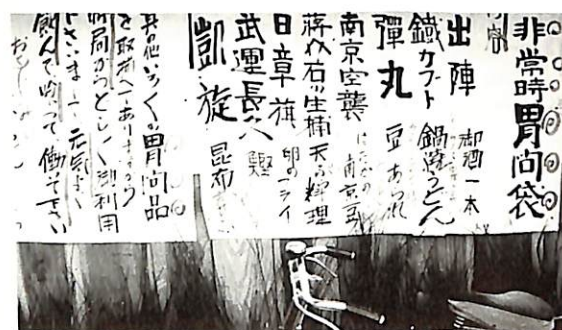 非常時胃問袋
出陣 御酒一本
鐵カブト 鍋燒うどん
彈丸 豆あられ
南京空襲 はだかの南京豆
蔣介石ノ生捕 天ぷら料理
日章旗 卵のフライ
武運長久 鰹
凱旋 昆布
其の他いろ〱の胃問品
を取揃へありますから
御利用
下さいまして元気よく
飲んで喰って働て下さい